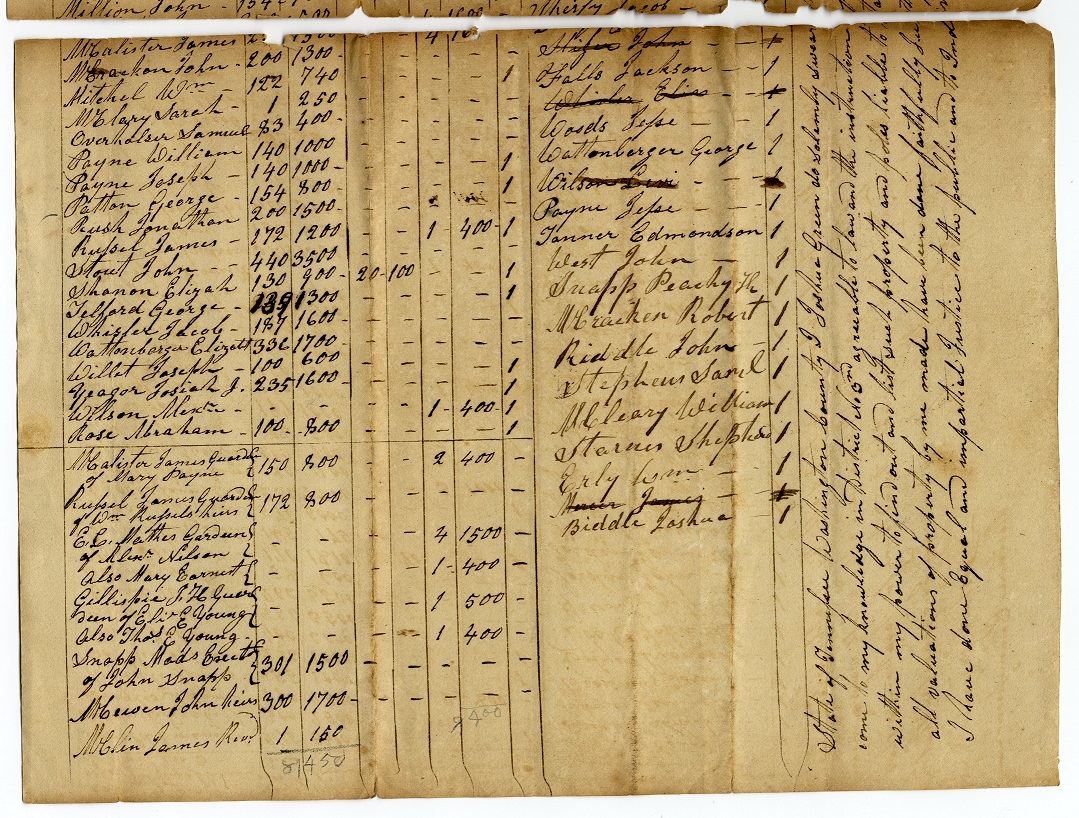 Million John -
McAlister James
McCracken John - 200 1300 -
Mitchel Wm - 122 740 1
McClary Sarah - 1 250
Overholser Samuel 83 400 -
Payne William 140 1000
Payne Joseph - 140 1000 - 1
Patton George - 154 800 - 1
Rush Jonathan 200 1500 -
Russel James - 172 1200 1 - 400 - 1
Stout John - - 440 3500
Shanon Elizah 130 900 - 20 - 100 1
Telford George - 1300 - 1
Whisler Jacob - 187 1600 -
Wattenbarger Elizabth 336 1700 -
Willet Joseph - 100 600 1
Yeagor Josiah J. 235 1600 - 1
Wilson Alexr - 1 - 400 - 1
Rose Abraham - 100 - 800 1
McAlister James Guard
of Mary Payne 150 800 2 400 -
Russel James Guard
of Wm Russels heirs 172 800
E. L. Mathes Gardeen
of Alexr Nelson 4 1500
Also Mary Earnest 1 - 400 -
Gillispie J. H. Guar
deen of Eliz E Young 1 500 -
Also Thos E Young - 1 400
Snapp Mads Exect
of John Snapp 301 1500
McCewen John heirs 300 1700 -
McLin James Revd 1 150
81450
8400
Stifer John - - 1
Falls Jackson - - 1
Whisler Elis - - 1
Woods Jesse - - 1
Wattenberger George 1
Wilson Levi - - 1
Payne Jesse - - 1
Tanner Edmondson 1
West John - 1
Snapp Peachy H 1
McCracken Robert 1
Riddle John - 1
Stephens Saml 1
McCleary William 1
Starnes Shepherd 1
Erly Wm - 1
James - 1
Biddle Joshua - 1
State of Tennessee Washington County I Joshua Green do solemly swear
come to my knowledge in District No 3rd agreeable to law and the instruction
within my power to find out and list such property and poles liable to
all valuations of property by me made have been done faithfully
I have done Equal and impartial Justice to the public and to Ind